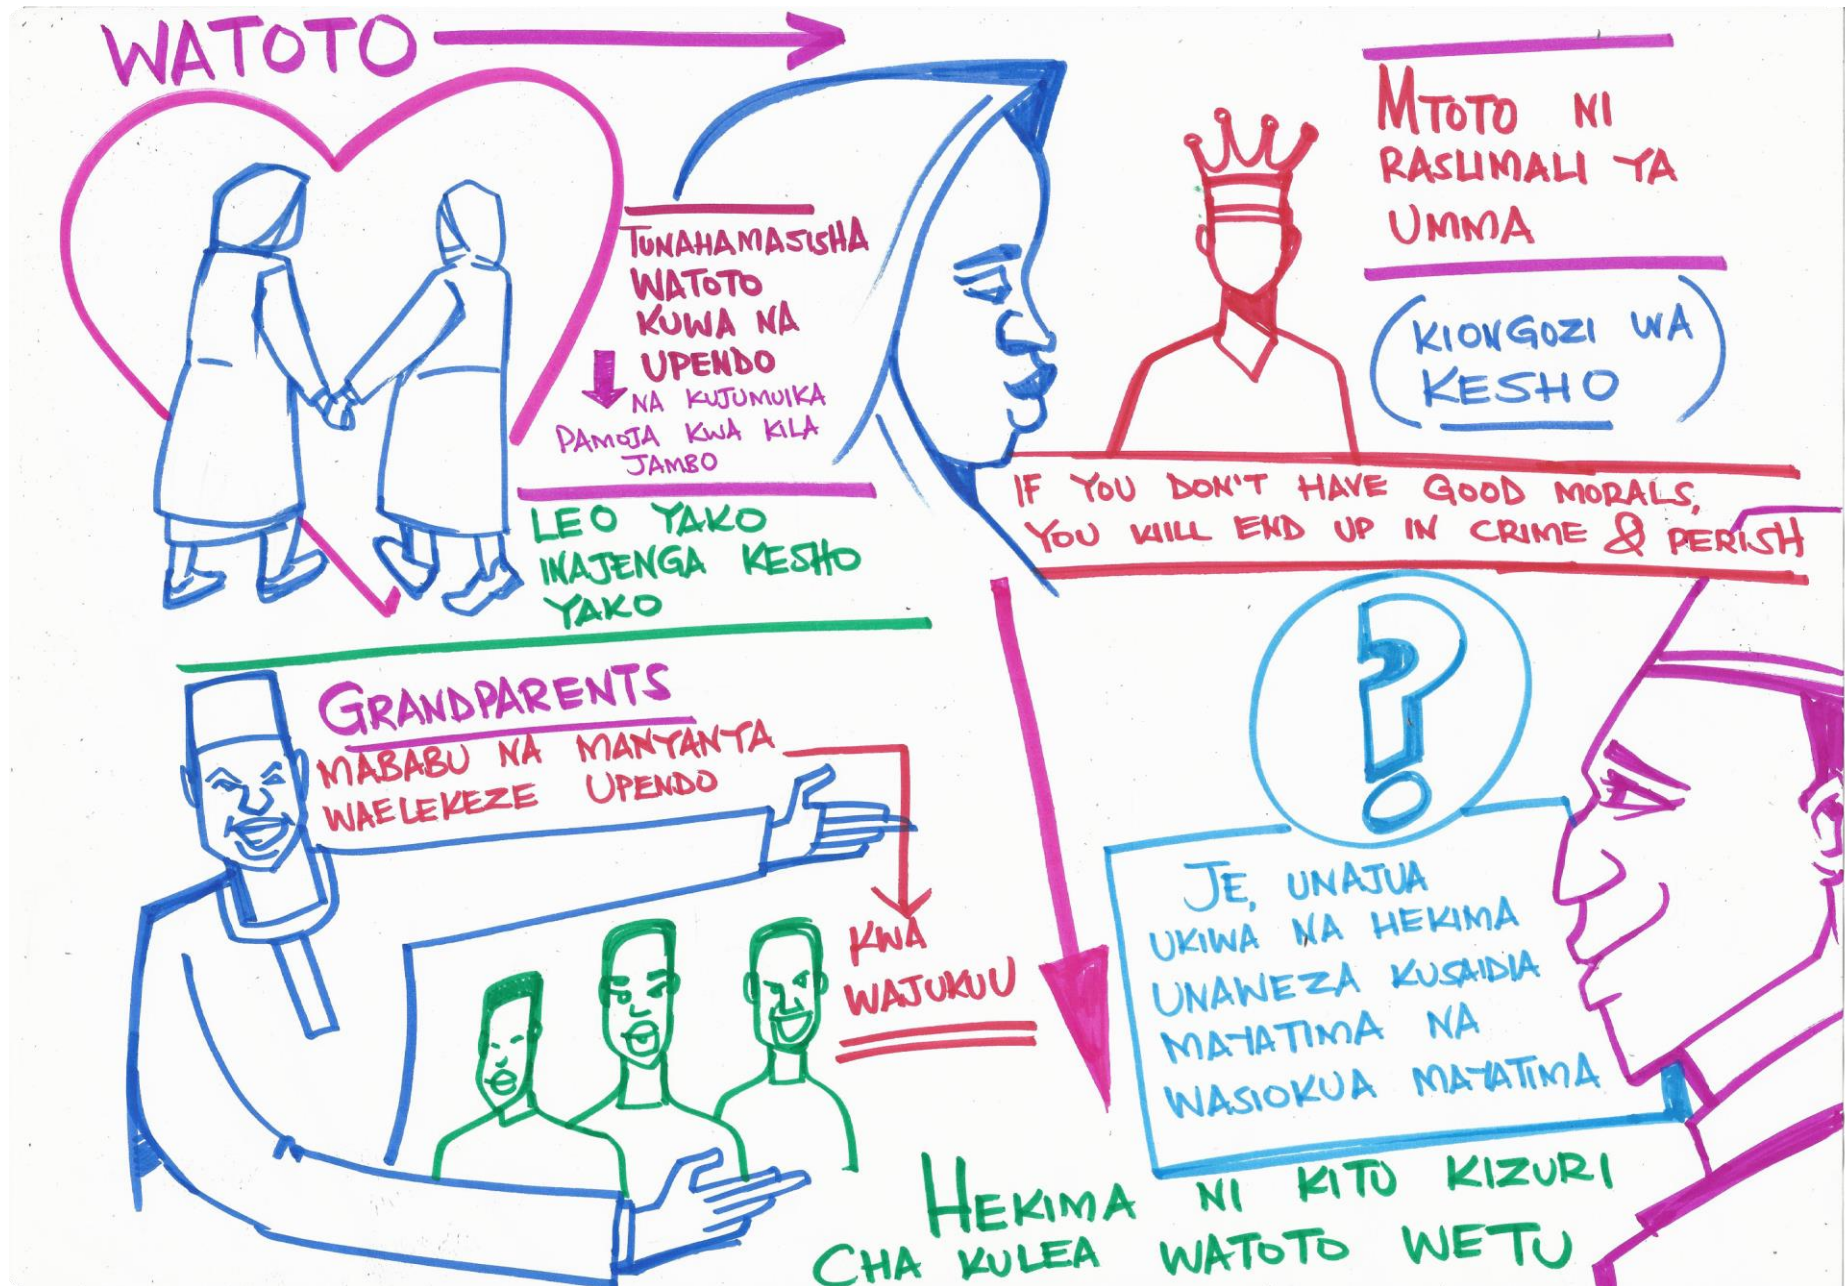 WATOTO
TUNAHAMASISHA
WATOTO
KUWA NA
UPENDO
NA KUJUMUIKA
PAMOJA KWA KILA
JAMBO
LEO YAKO
INAJENGA KESHO
YAKO
MTOTO NI
RASLIMALI YA
UMMA
(KIONGOZI WA
KESHO)
IF YOU DON'T HAVE GOOD MORALS,
YOU WILL END UP IN CRIME & PERISH
GRANDPARENTS
MABABU NA MANYANYA
WAELEKEZE UPENDO
KWA
WAJUKUU
?
JE, UNAJUA
UKIWA NA HEKIMA
UNAWEZA KUSAIDIA
MAYATIMA NA
WASIOKUA MAYATIMA
HEKIMA NI KITU KIZURI
CHA KULEA WATOTO WETU